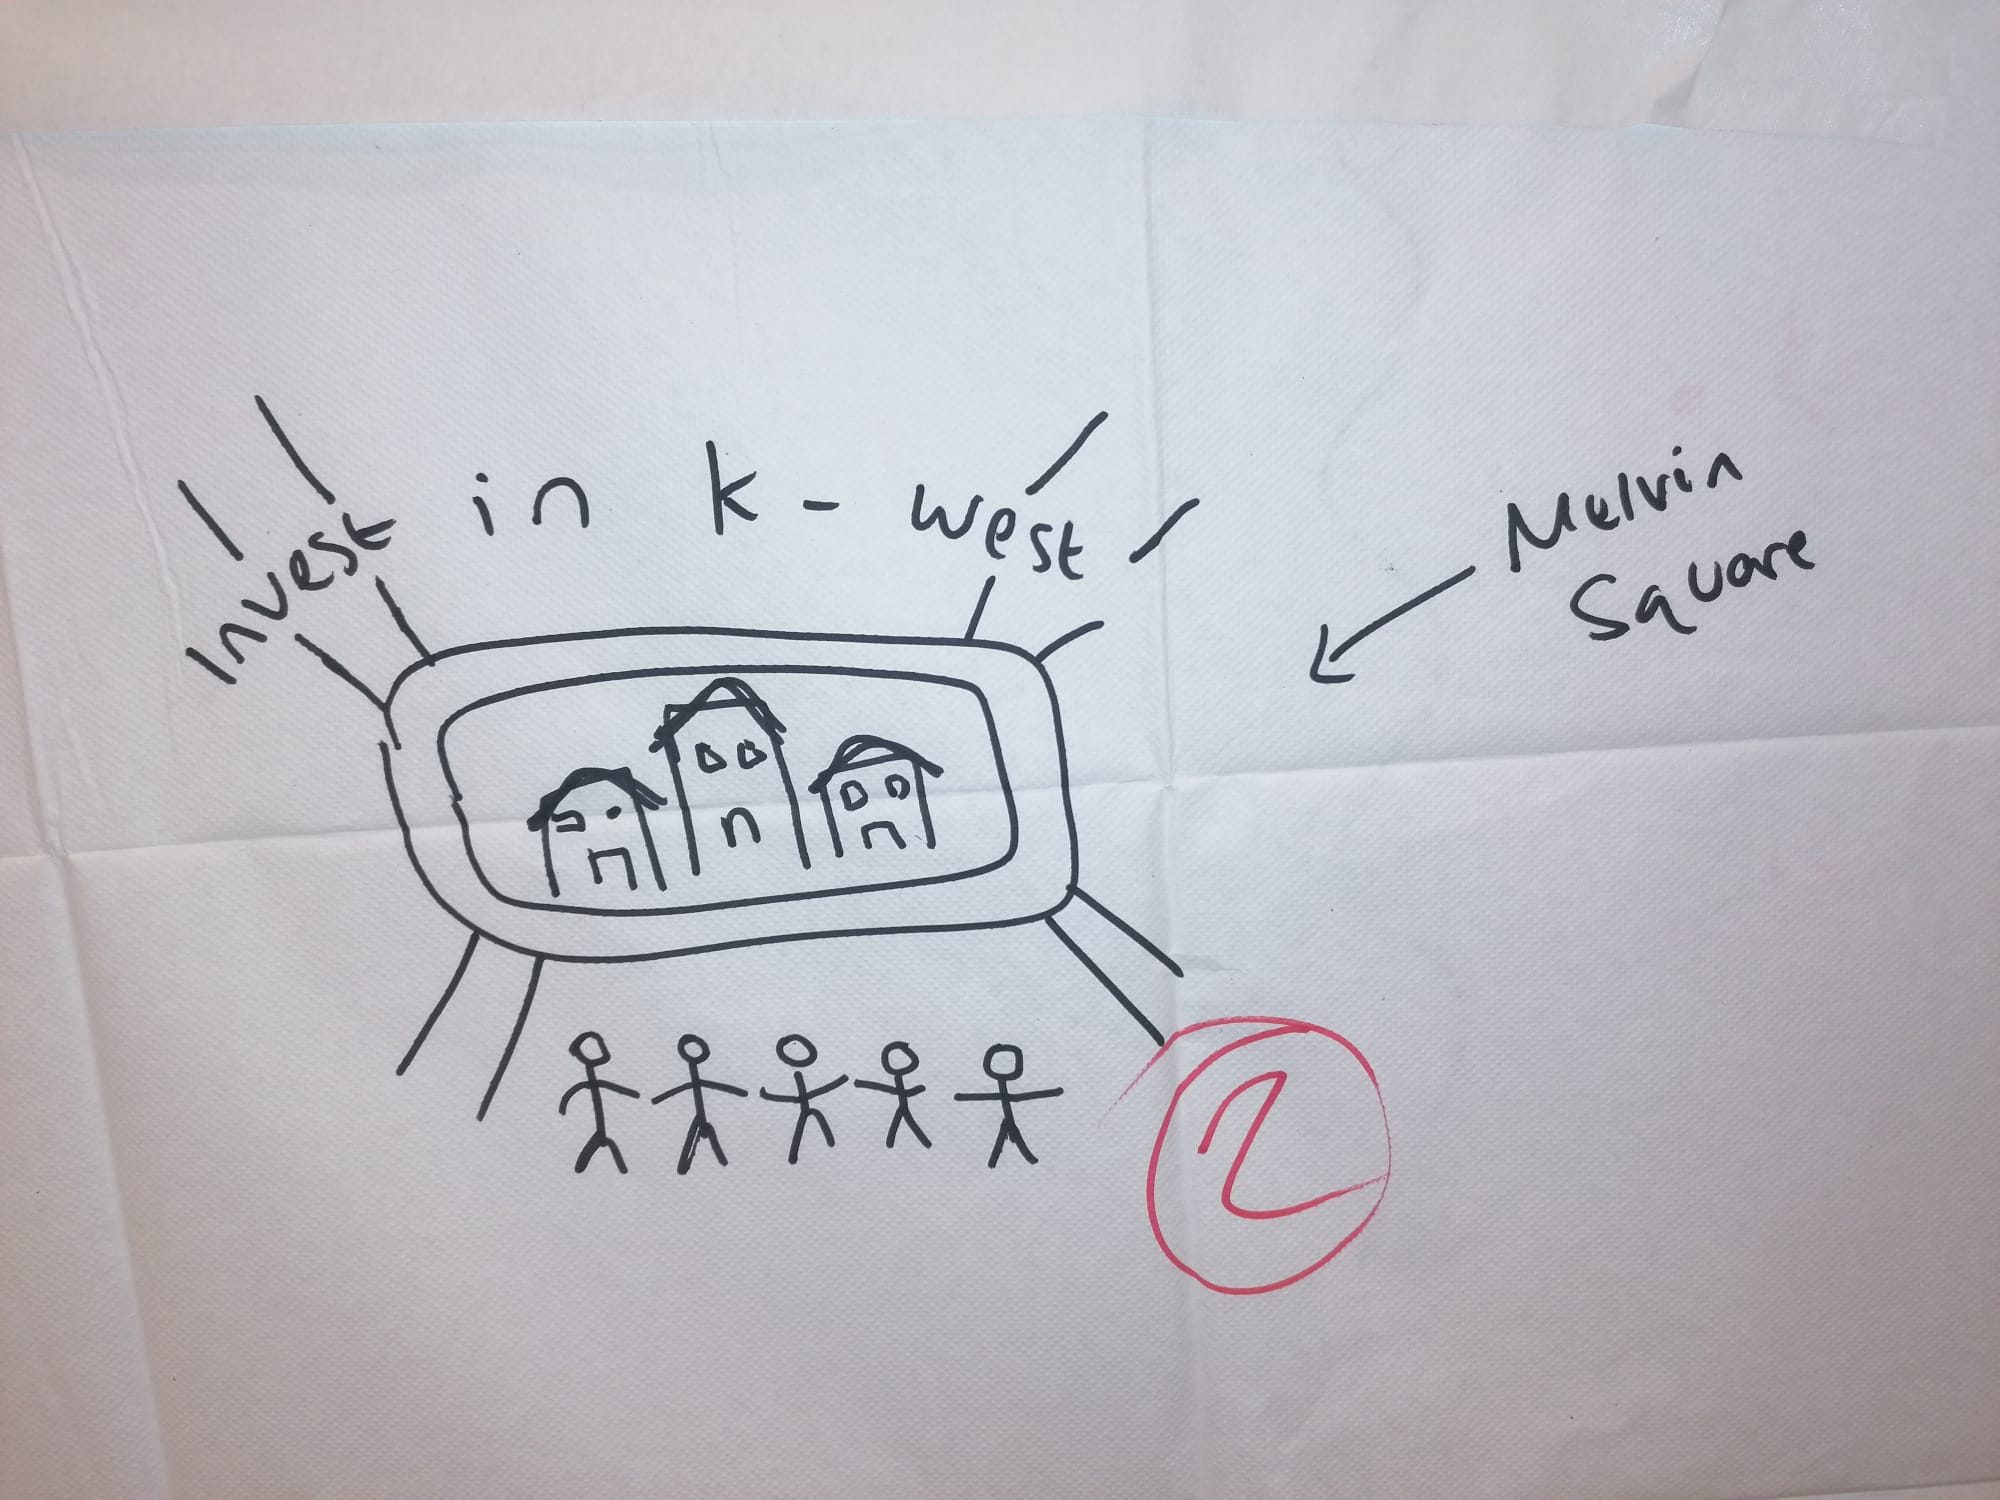 Invest in k-west
Melvin
Square
2